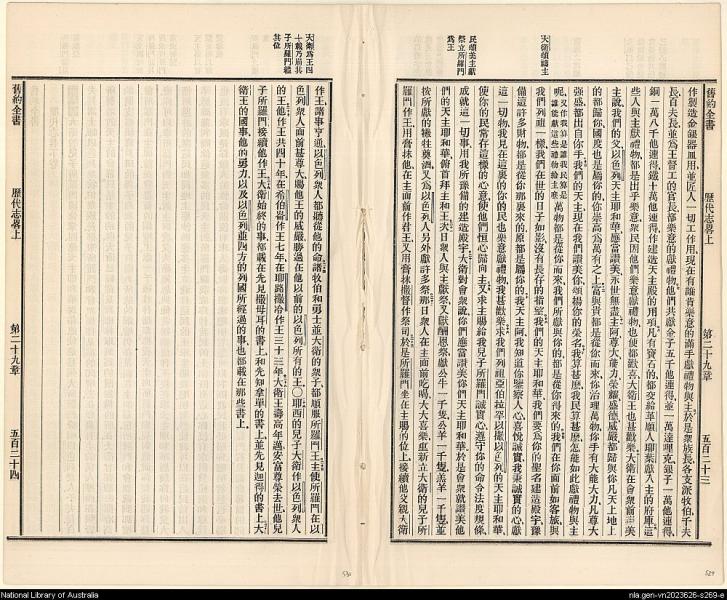 舊約全書 歷代志畧上 第二十九章 五百二十三
大衛頌讚主
民頌美主獻
祭立所羅門
爲王
作製造金銀器皿用並匠人一切工作用現在有誰肯樂意的滿手獻禮物與主於是衆族長各支派牧伯千夫
長百夫長並爲王督工的官長都樂意的獻禮物他們共獻金子五千他連得並一萬達哩克銀子一萬他連得
銅一萬八千他連得鐵十萬他連得作建造天主殿的用項凡有寶石的都交給革順人耶葉獻入主的府庫這
些人與主獻禮物都是出乎樂意衆民因他們樂意獻禮物也便都歡喜大衛王也甚歡樂大衛在會衆前讚美
主說我們的父以色列天主耶和華應當讚美永世無盡主阿尊大能力榮耀盛德威嚴都歸與你凡天上地上
的都歸你國度也是屬你的你崇高爲萬有之上富與貴都是從你而來你治理萬物你手有大能大力凡尊大
強盛都出自你手我們的天主現在我們讚美你頌揚你的榮名我算甚麼我民算甚麼怎能如此獻禮物與主
呢又作我算是誰我民算是誰能獻這些禮物給主麽萬物都是從你而來我們所獻與你的都是從你得來的我們在你面前如客旅與
我們列祖一樣我們在世的日子如影沒有長存的指望我們的天主耶和華我們要爲你的聖名建造殿宇豫
備這許多財物都是從你那裏來的原都是屬你的我天主阿我知道你鑒察人心喜悅誠實我秉誠實的心獻
這一切物我見在這裏的你的民也樂意獻禮物我甚歡樂求我們列祖亞伯拉罕以撒以色列的天主耶和華
使你的民常存這樣的心意使他們恒心歸向主又求主賜給我兒子所羅門誠實心遵守你的命令法度規條
成就這一切事用我所豫備的建造殿宇大衛對會衆說你們應當讚美你們天主耶和華於是會衆就讚美他
們的天主耶和華俯首拜主和王次日衆人與主獻祭又獻酬恩祭獻公牛一千隻公羊一千隻羔羊一千隻並
按所獻的犧牲奠酒又爲以色列人另外獻許多祭那日衆人在主面前吃喝大大喜樂重新立大衛的兒子所
羅門作王用膏抹他在主面前作君王又用膏抹撒督作祭司於是所羅門坐在主賜的位上接續他父親大衛
大衛爲王四
十載乃崩其
子所羅門繼
其位
作王諸事亨通以色列衆人都聽從他的命諸牧伯和勇士並大衛的衆子都順服所羅門王主使所羅門在以
色列衆人面前甚尊大賜他王的威嚴勝過在他以前的以色列所有的王〇耶西的兒子大衛作以色列衆人
的王他作王共四十年在希伯崙作王七年在耶路撒冷作王三十三年大衛王壽高年邁安富尊榮去世他兒
子所羅門接續他作王大衛始終的事都載在先見撒母耳的書上和先知拿單的書上並先見迦得的書上大
衛王的國事他的勇力以及以色列並四方的列國所經過的事也都載在那些書上
舊約全書 歷代志畧上 第二十九章 五百二十四
530
529
National Library of Australia
nla.gen-vn2023626-s269-e